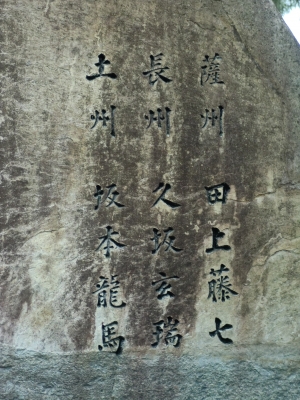 薩州 田上藤七
長州 久坂玄瑞
土州 坂本龍馬